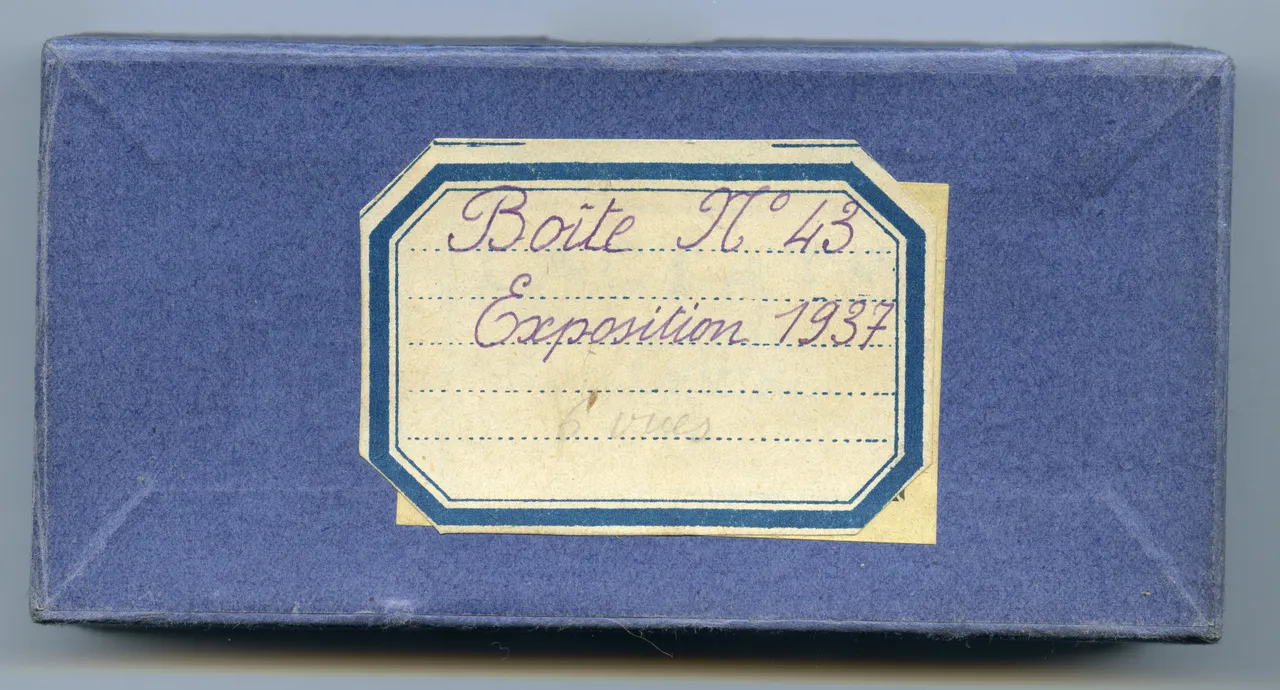 Boîte N° 43
Exposition 1937
6 vues